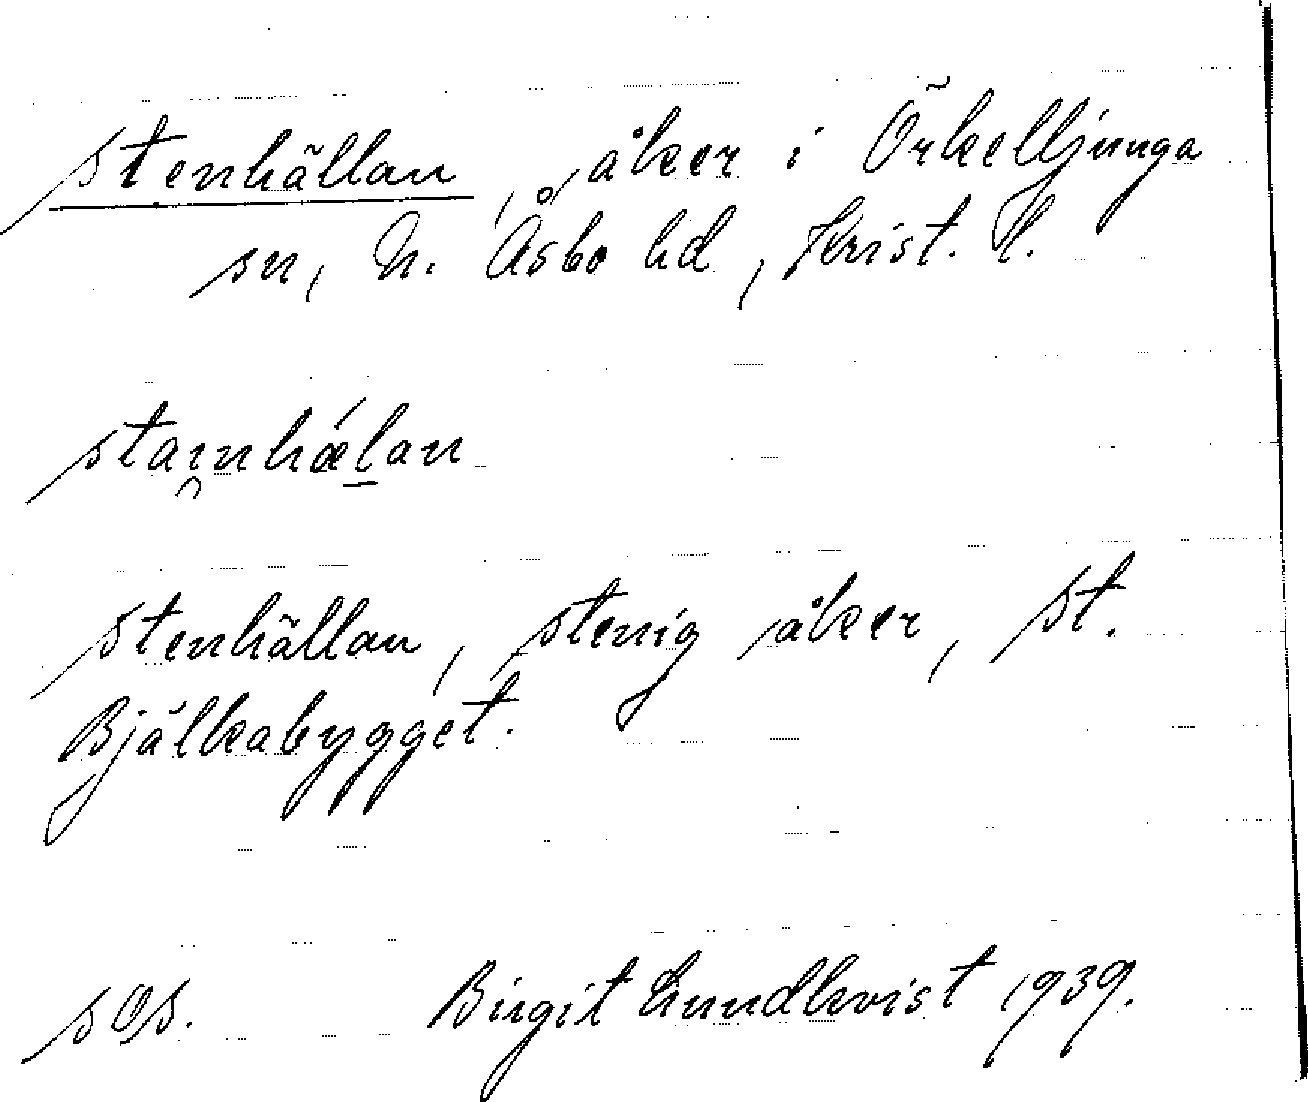 stenhällan, åker i Örkelljunga
sn, N. Åsbo hd, Krist. l.
stai̯nhǽl̠an
stenhällan, stenig åker, st.
Bjälkabygget.
sOs. Birgit Lundkvist 1939.